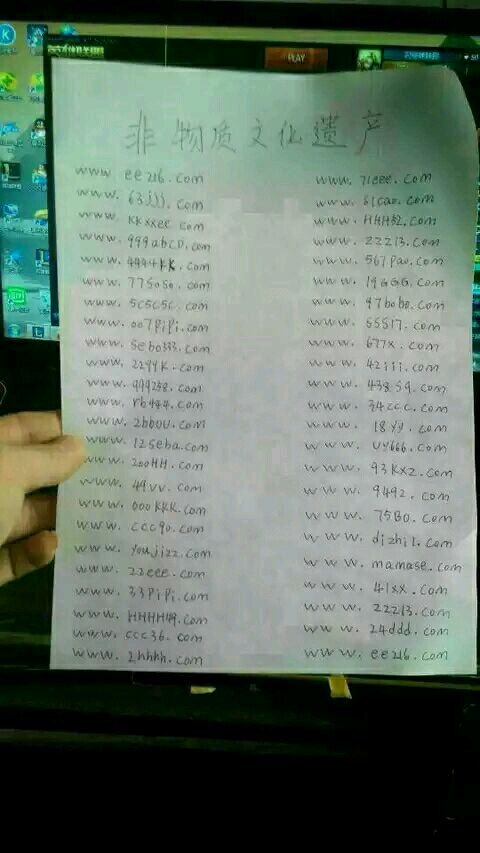 PLAY
非物质文化遗产
www.ee216.com
www.63jjj.com
www.kkxxee.com
www.999abcD.com
www.4444kk.com
www.775oso.com
www.5c5c5c.com
www.007PiPi.com
www.5ebo333.com
www.2299K.com
www.444238.com
www.rb484.com
www.2hbuu.com
www.125eba.com
www.200HH.com
www.49vv.com
www.000KKK.com
www.ccc90.com
www.youjizz.com
www.22eee.com
www.33PiPi.com
www.ccc36.com
www.2hhhh.com
www.71eee.com
www.81cao.com
www.22213.com
www.567Pao.com
www.19GGG.com
www.97bobo.com
www.55517.com
www.677x.com
www.42iii.com
www.438sq.com
www.34ccc.com
www.18yy.com
www.uy666.com
www.93Kxz.com
www.9492.com
www.75Bo.com
www.dizhi1.com
www.mamase.com
www.41xx.com
www.22213.com
www.24ddd.com
www.ee216.com